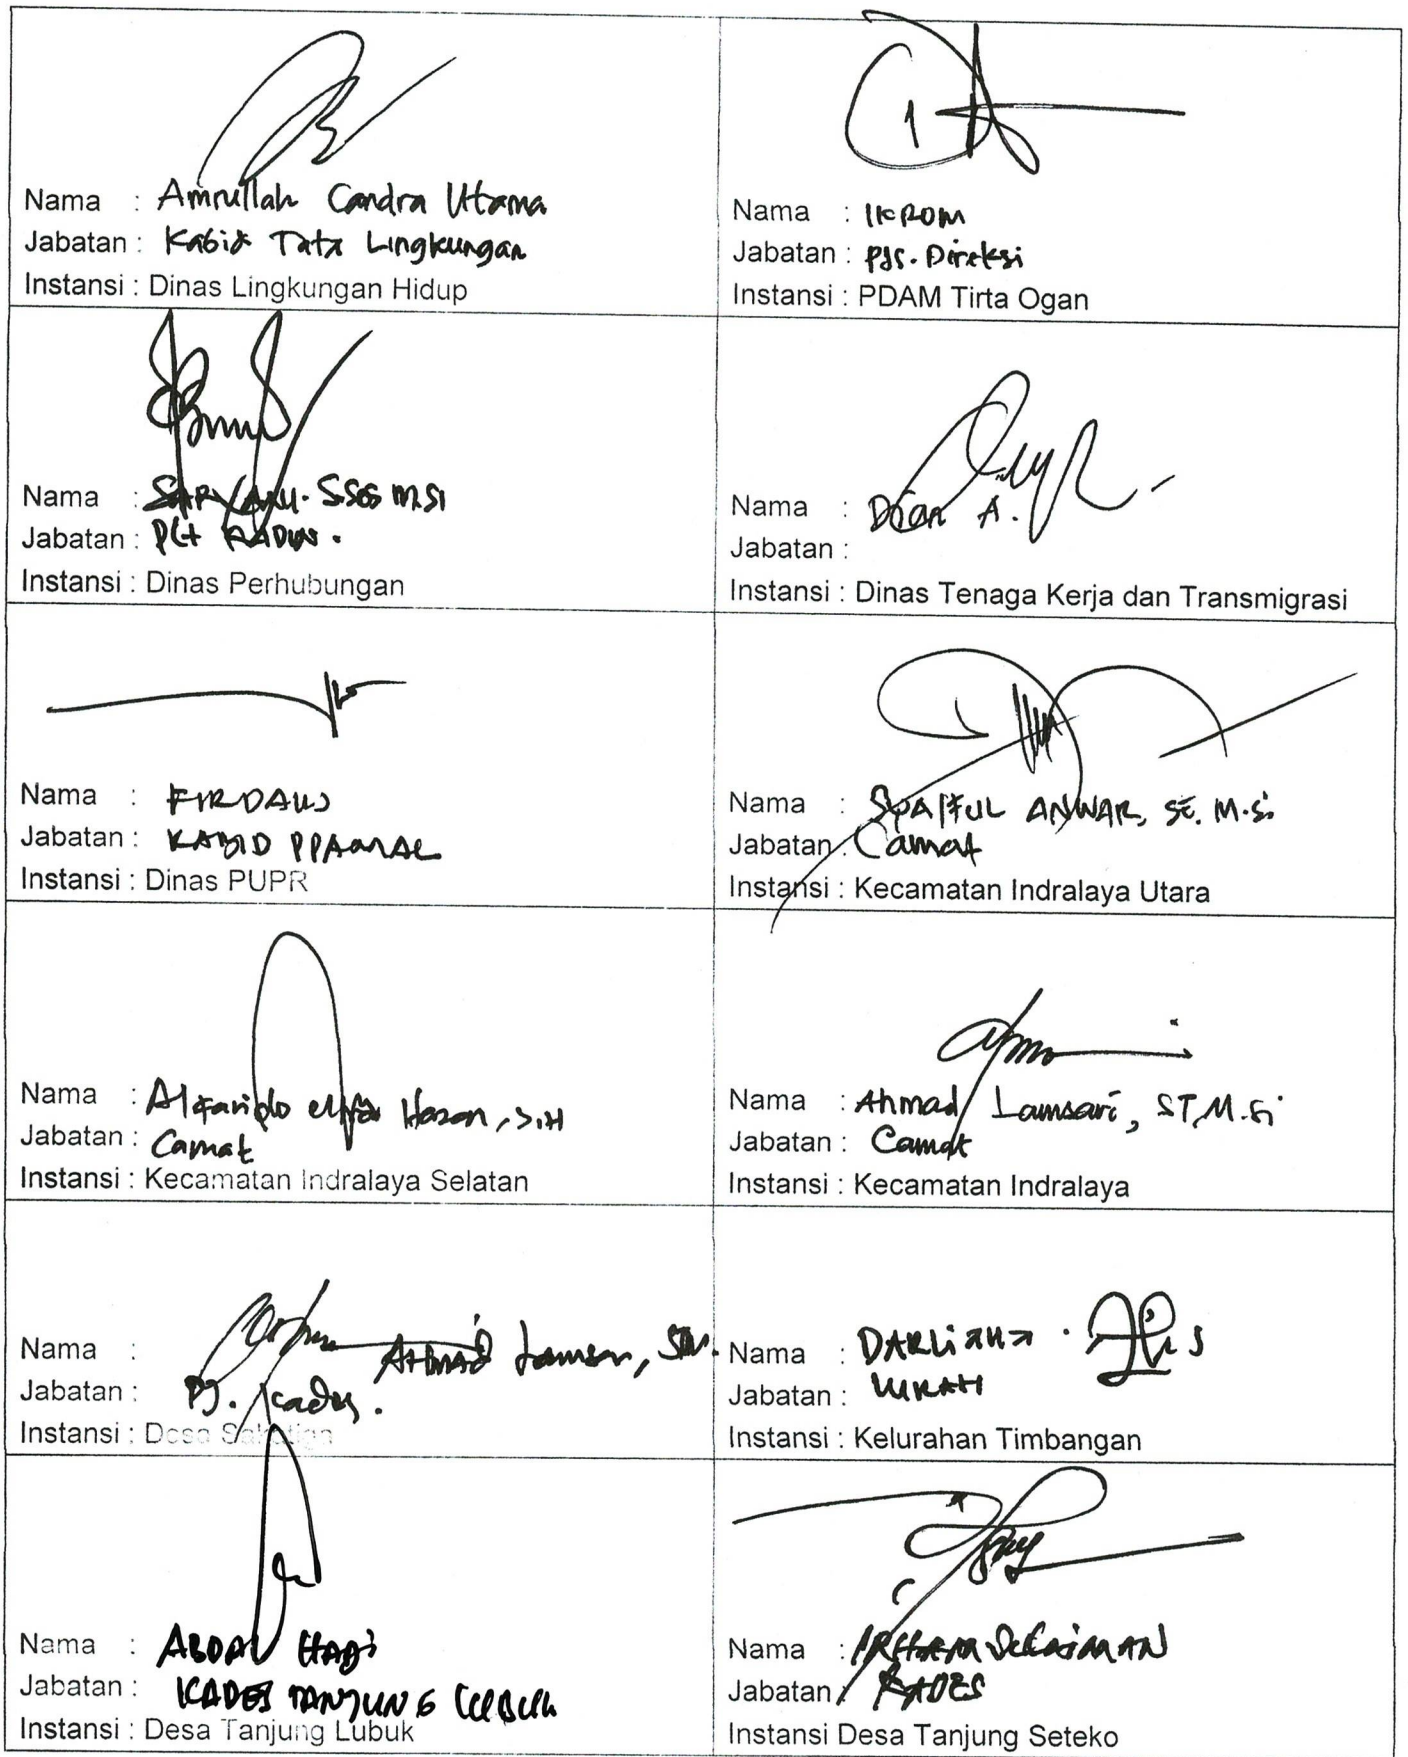 Nama : Amrullah Candra Utama
Jabatan : Kabid Tata Lingkungan
Instansi : Dinas Lingkungan Hidup
Nama : IKROM
Jabatan : Pjs. Direksi
Instansi : PDAM Tirta Ogan
Nama : S.Sos M.Si
Jabatan : Plt KADIS.
Instansi : Dinas Perhubungan
Nama : Dian A.
Jabatan :
Instansi : Dinas Tenaga Kerja dan Transmigrasi
Nama : FIRDAUS
Jabatan : KABID
Instansi : Dinas PUPR
Nama : SYAIFUL ANWAR, SE. M.Si
Jabatan : Camat
Instansi : Kecamatan Indralaya Utara
Nama : Hasan, S.H
Jabatan : Camat
Instansi : Kecamatan Indralaya Selatan
Nama : Ahmad Lamsari, ST, M.Si
Jabatan : Camat
Instansi : Kecamatan Indralaya
Nama : Ahmad
Jabatan : Pj. Kades.
Instansi : Desa Sakatiga
Nama : DARLIANA
Jabatan : LURAH
Instansi : Kelurahan Timbangan
Nama : ABDAL HADI
Jabatan : KADES TANJUNG LUBUK
Instansi : Desa Tanjung Lubuk
Nama : IRHAM SULAIMAN
Jabatan KADES
Instansi Desa Tanjung Seteko